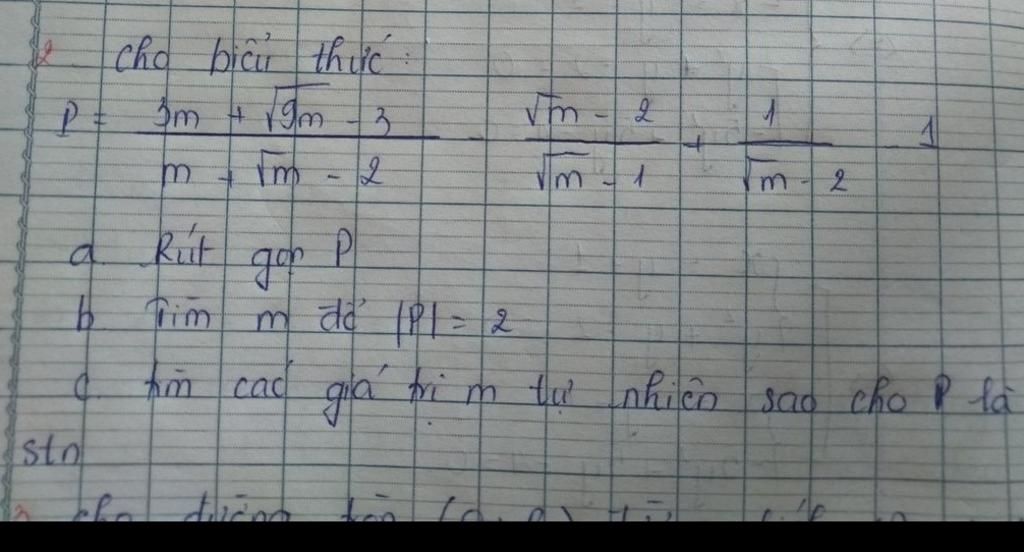 2 cho biểu thức:
P = \frac{3m + \sqrt{9m} - 3}{m + \sqrt{m} - 2} - \frac{\sqrt{m} - 2}{\sqrt{m} - 1} + \frac{1}{\sqrt{m} - 2} - 1
a Rút gọn P
b Tìm m để |P| = 2
c tìm các giá trị m tự nhiên sao cho P là
stn